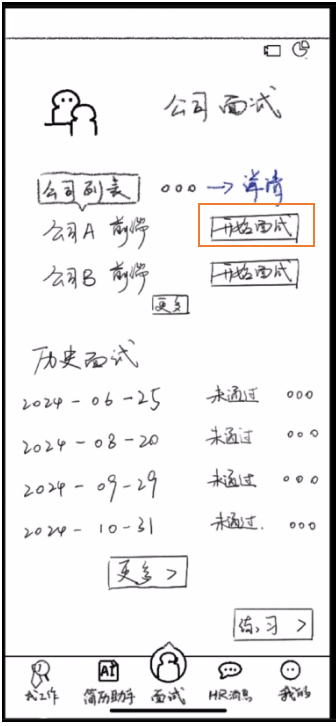 公司面试
公司列表 ooo → 详情
公司A 前端 开始面试
公司B 前端 开始面试
更多
历史面试
2024-06-25 未通过 ooo
2024-08-20 未通过 ooo
2024-09-29 未通过 ooo
2024-10-31 未通过. ooo
更多 >
练习 >
找工作 AI 简历助手 面试 HR消息 我的